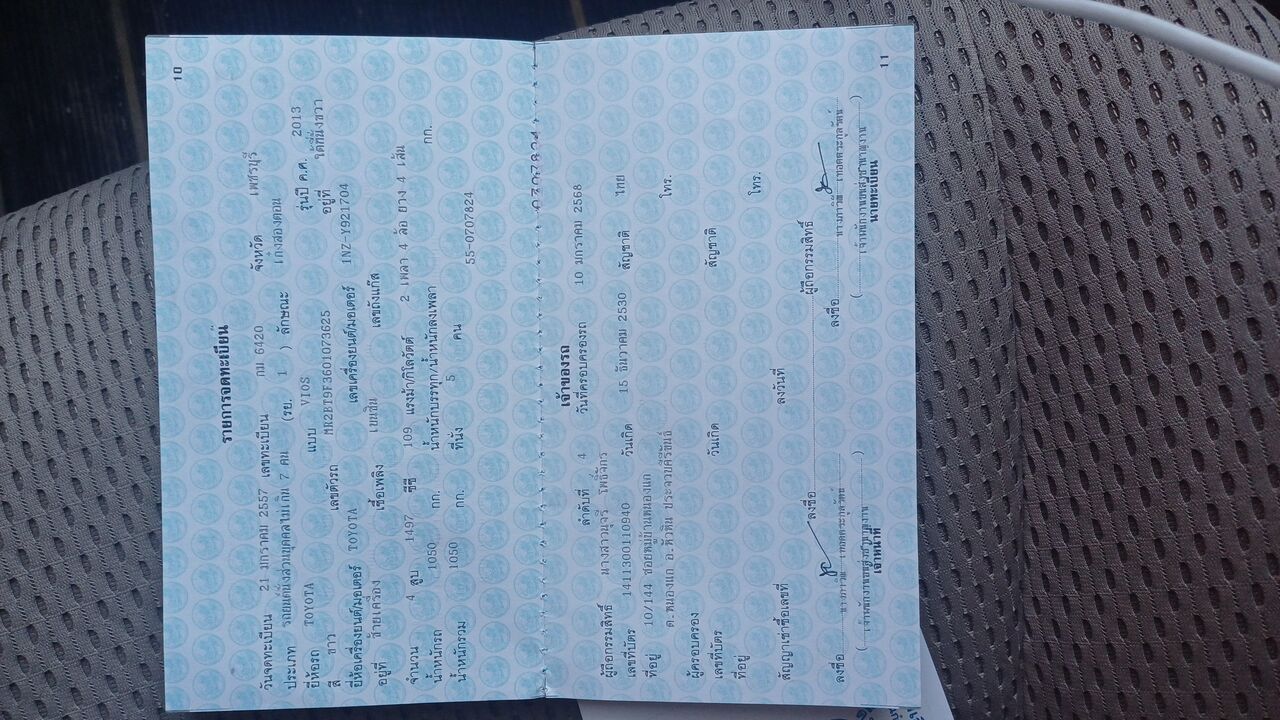 10
รายการจดทะเบียน
วันจดทะเบียน 21 มกราคม 2557 เลขทะเบียน กม 6420 จังหวัด เพชรบุรี
ประเภท รถยนต์นั่งส่วนบุคคลไม่เกิน 7 คน (รย. 1 ) ลักษณะ เก๋งสองตอน
ยี่ห้อรถ TOYOTA แบบ VIOS รุ่นปี ค.ศ. 2013
สี ขาว เลขตัวรถ MR2BT9F3601073625 อยู่ที่ ใต้ที่นั่งขวา
ยี่ห้อเครื่องยนต์/มอเตอร์ TOYOTA เลขเครื่องยนต์/มอเตอร์ 1NZ-Y921704
อยู่ที่ ซ้ายเครื่อง เชื้อเพลิง เบนซิน เลขถังแก๊ส
จำนวน 4 สูบ 1497 ซีซี 109 แรงม้า/กิโลวัตต์ 2 เพลา 4 ล้อ ยาง 4 เส้น
น้ำหนักรถ 1050 กก. น้ำหนักบรรทุก/น้ำหนักลงเพลา กก.
น้ำหนักรวม 1050 กก. ที่นั่ง 5 คน
55-0707824
0707824
เจ้าของรถ
ลำดับที่ 4 วันที่ครอบครองรถ 10 มกราคม 2568
ผู้ถือกรรมสิทธิ์ นางสาวนุจรี โพธิ์จักร
เลขที่บัตร 1411300110940 วันเกิด 15 ธันวาคม 2530 สัญชาติ ไทย
ที่อยู่ 10/144 ซอยหมู่บ้านหนองแก โทร.
ต.หนองแก อ.หัวหิน ประจวบคีรีขันธ์
ผู้ครอบครอง
เลขที่บัตร วันเกิด สัญชาติ
ที่อยู่ โทร.
สัญญาเช่าซื้อเลขที่ ลงวันที่
ลงชื่อ ผู้ถือกรรมสิทธิ์
ลงชื่อ ลงชื่อ
(เจ้าพนักงานขนส่งชำนาญงาน) (เจ้าพนักงานขนส่งชำนาญงาน)
เจ้าหน้าที่ นายทะเบียน
11